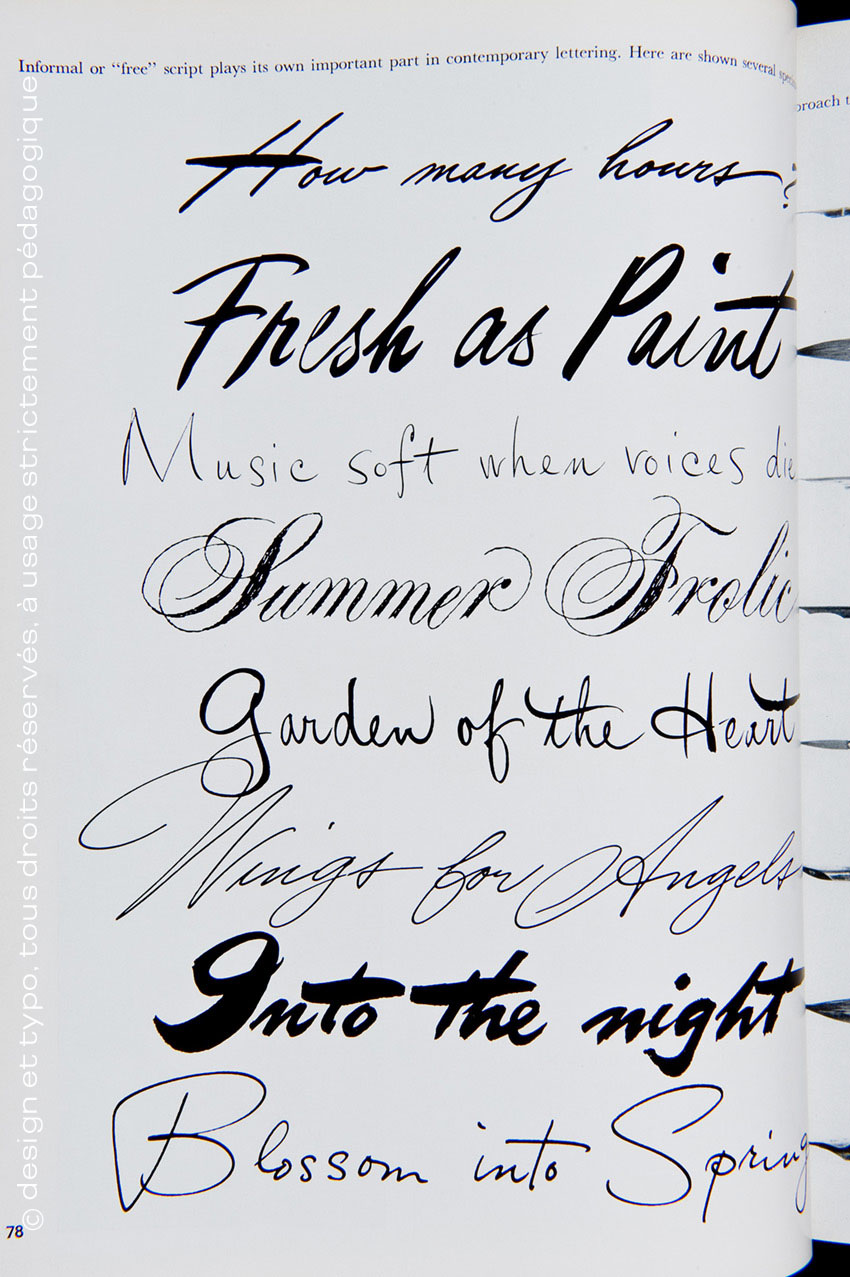 Informal or “free” script plays its own important part in contemporary lettering. Here are shown several
How many hours?
Fresh as Paint
Music soft when voices die
Summer Frolic
Garden of the Heart
Wings for Angels
Into the night
Blossom into Spring
78
© design et typo, tous droits réservés, à usage strictement pédagogique